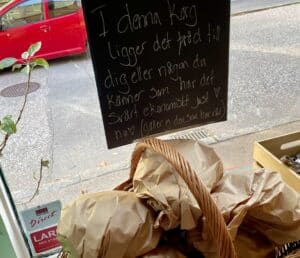 I denna korg
ligger det bröd till
dig eller någon du
känner som har det
svårt ekonomiskt just
nu ♡ (eller en dag som har rätt)
Direct
LARM